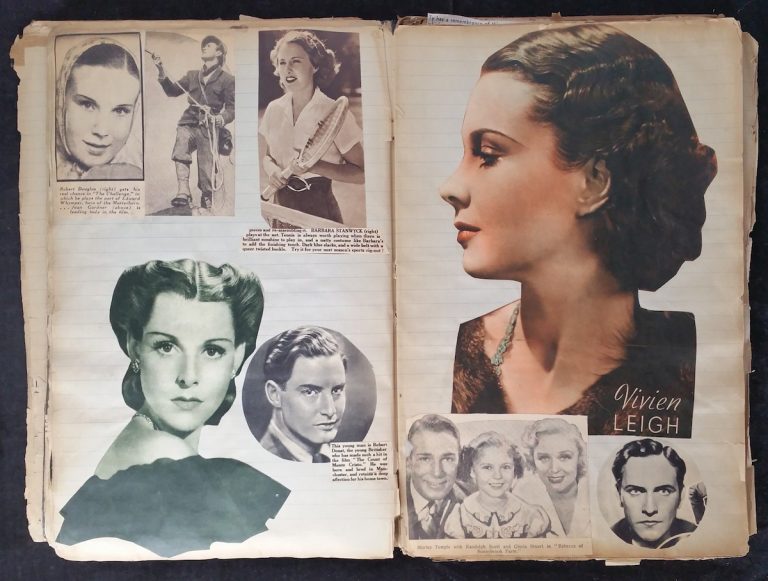 Robert Douglas (right) gets his
real chance in "The Challenge," in
which he plays the part of Edward
Whymper, hero of the Matterhorn.
. . . Joan Gardner (above) is
leading lady in the film.
pieces and re-assembling it. BARBARA STANWYCK (right)
plays at the net. Tennis is always worth playing when there is
brilliant sunshine to play in, and a natty costume like Barbara's
to add the finishing touch. Dark blue slacks, and a wide belt with a
queer twisted buckle. Try it for your next season's sports rig-out!
This young man is Robert
Donat, the young Britisher
who has made such a hit in
the film "The Count of
Monte Cristo." He was
born and bred in Man-
chester, and retains a deep
affection for his home town.
has a remembrance of
Vivien
LEIGH
Shirley Temple with Randolph Scott and Gloria Stuart in "Rebecca of
Sunnybrook Farm."